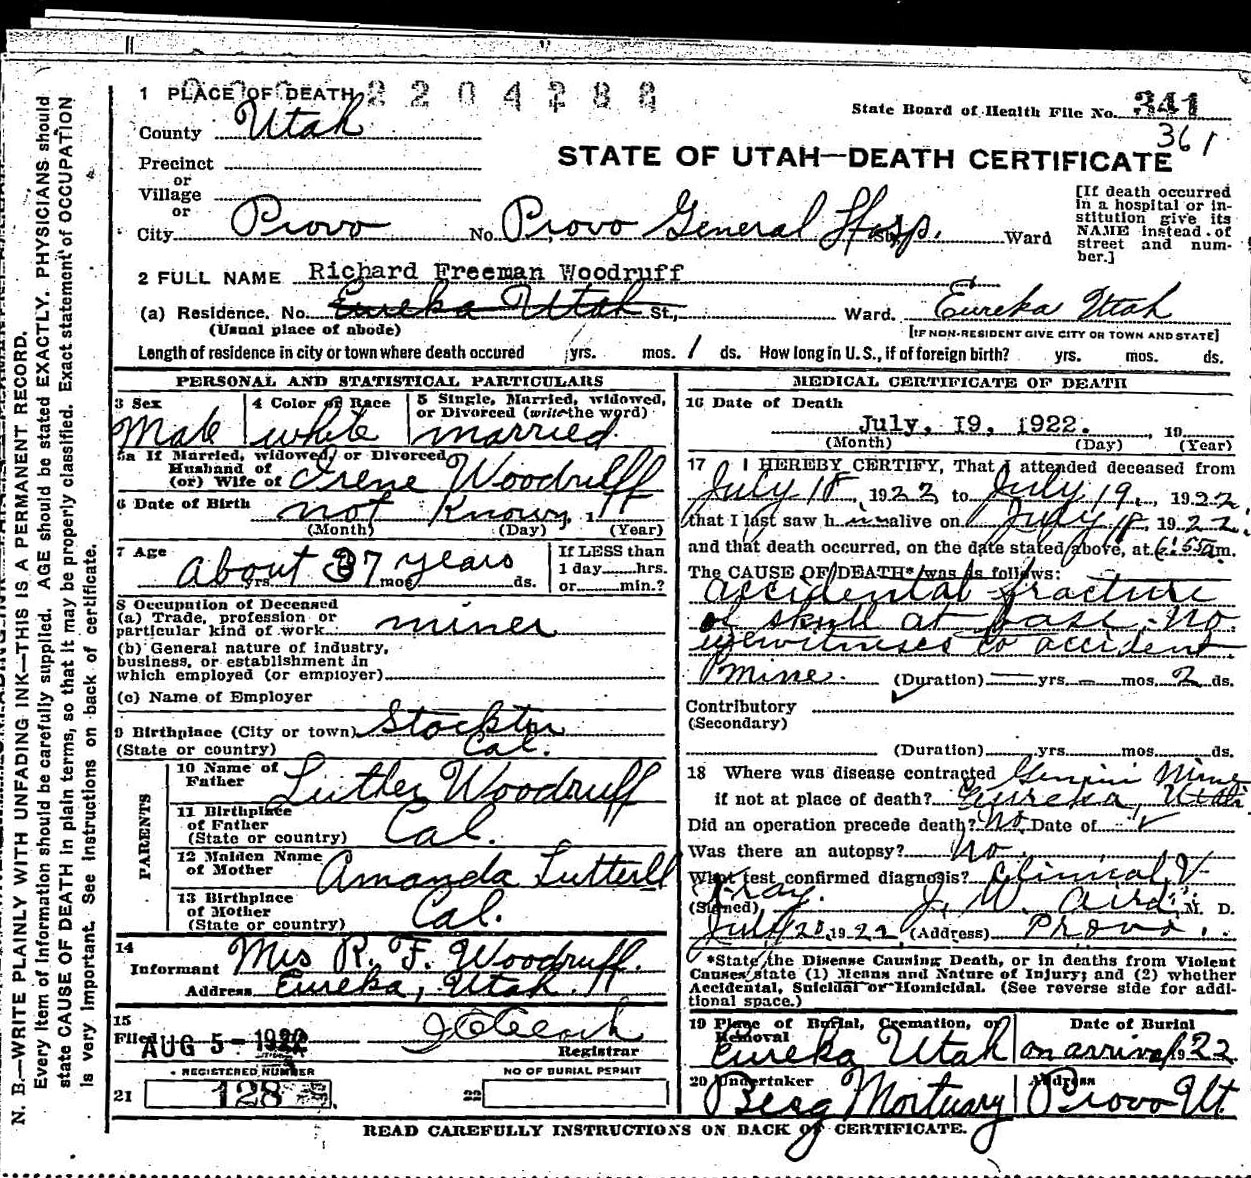 1 PLACE OF DEATH 2204288
State Board of Health File No. 341
361
County Utah
STATE OF UTAH—DEATH CERTIFICATE
Precinct
or
Village
or
City Provo No. Provo General Hosp. St. Ward
[If death occurred
in a hospital or in-
stitution give its
NAME instead of
street and num-
ber.]
2 FULL NAME Richard Freeman Woodruff
(a) Residence. No. Eureka Utah St., Ward. Eureka Utah
(Usual place of abode)
[IF NON-RESIDENT GIVE CITY OR TOWN AND STATE]
Length of residence in city or town where death occured yrs. mos. 1 ds. How long in U. S., if of foreign birth? yrs. mos. ds.
PERSONAL AND STATISTICAL PARTICULARS
3 Sex
Male
4 Color or Race
white
5 Single, Married, widowed,
or Divorced (write the word)
married
5a If Married, widowed, or Divorced
Husband of
(or) Wife of Irene Woodruff
6 Date of Birth not Known, 1
(Month) (Day) (Year)
7 Age
about 37 years
yrs. mos. ds.
If LESS than
1 day hrs.
or min.?
8 Occupation of Deceased
(a) Trade, profession or
particular kind of work miner
(b) General nature of industry,
business, or establishment in
which employed (or employer)
(c) Name of Employer
9 Birthplace (City or town) Stockton
(State or country) Cal.
PARENTS
10 Name of
Father Luther Woodruff
11 Birthplace
of Father
(State or country) Cal.
12 Maiden Name
of Mother Amanda Lutterell
13 Birthplace
of Mother
(State or country) Cal.
14
Informant Mrs R. F. Woodruff.
Address Eureka, Utah.
15
Filed AUG 5 - 1922
Registrar
REGISTERED NUMBER
21 128
NO OF BURIAL PERMIT
22
MEDICAL CERTIFICATE OF DEATH
16 Date of Death
July, 19, 1922. 19
(Month) (Day) (Year)
17 I HEREBY CERTIFY, That I attended deceased from
July 18, 1922 to July 19, 1922.
that I last saw him alive on July 18, 1922.
and that death occurred, on the date stated above, at 6:55 am.
The CAUSE OF DEATH* was as follows:
accidental fracture
of skull at base. No
eyewitnesses to accident
Mine. (Duration) — yrs. — mos. 2 ds.
Contributory
(Secondary)
(Duration) yrs. mos. ds.
18 Where was disease contracted Gemini Mine
if not at place of death? Eureka, Utah
Did an operation precede death? No Date of
Was there an autopsy? No
What test confirmed diagnosis? Clinical &
X-ray.
(Signed) J. W. Aird, M. D.
July 20, 1922 (Address) Provo.
*State the Disease Causing Death, or in deaths from Violent
Causes state (1) Means and Nature of Injury; and (2) whether
Accidental, Suicidal or Homicidal. (See reverse side for addi-
tional space.)
19 Place of Burial, Cremation, or
Removal
Eureka Utah
Date of Burial
on arrival 1922
20 Undertaker
Berg Mortuary
Address
Provo Ut.
READ CAREFULLY INSTRUCTIONS ON BACK OF CERTIFICATE.
N. B.—WRITE PLAINLY WITH UNFADING INK—THIS IS A PERMANENT RECORD.
Every item of information should be carefully supplied. AGE should be stated EXACTLY. PHYSICIANS should
state CAUSE OF DEATH in plain terms, so that it may be properly classified. Exact statement of OCCUPATION
is very important. See instructions on back of certificate.